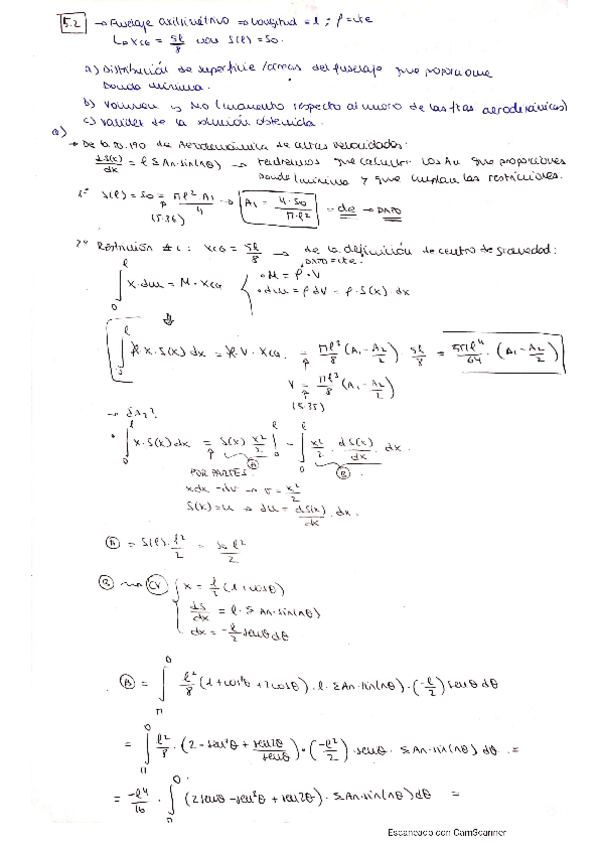 5.2 → Fuselaje axilsimétrico ⇒ Longitud = l ; ρ = cte
↳ X_CG = 5l/8 con S(l) = S0.
a) Distribución de superficie/áreas del fuselaje que proporcione
onda mínima.
b) Volumen y M0 (momento respecto al morro de las ftas aerodinámicas)
c) Validez de la solución obtenida.
a)
→ De la p. 190 de Aerodinámica de altas velocidades:
dS(x)/dx = l Σ An·sin(nθ) → tendremos que calcular los An que proporciones
onda mínima y que cumplan las restricciones.
1º S(l) = S0 = πl²A1/4 → A1 = 4·S0/π·l² = cte → DATO
(5.36)
2º Restricción #1: X_CG = 5l/8 → de la definición de centro de gravedad:
DATO = cte.
∫₀^l x·dm = M·X_CG { · M = ρ·V
· dm = ρ dV = ρ·S(x)·dx
⇓
∫₀^l ρ·x·S(x) dx = ρ·V·X_CG = πl³/8 (A1 - A2/2)·5l/8 = 5πl⁴/64·(A1 - A2/2)
V = πl³/8 (A1 - A2/2)
(5.35)
→ ¿A2?
· ∫₀^l x·S(x) dx = S(x) x²/2 |₀^l - ∫₀^l x²/2·dS(x)/dx·dx.
Ⓐ Ⓑ
POR PARTES
x dx = dv → v = x²/2
S(x) = u → du = dS(x)/dx·dx.
Ⓐ = S(l)·l²/2 = S0 l²/2
Ⓑ → CV { x = l/2 (1+cosθ)
dS/dx = l·Σ An·sin(nθ)
dx = -l/2 senθ dθ
Ⓑ = ∫_π^0 l²/8 (1+cos²θ+2cosθ)·l·ΣAn·sin(nθ)·(-l/2) senθ dθ
= ∫_π^0 l²/8·(2 - sen²θ + sen2θ/senθ)·(-l²/2)·senθ·ΣAn·sin(nθ) dθ =
= -l⁴/16·∫_π^0 (2senθ - sen³θ + sen2θ)·ΣAn·sin(nθ) dθ =
Escaneado con CamScanner